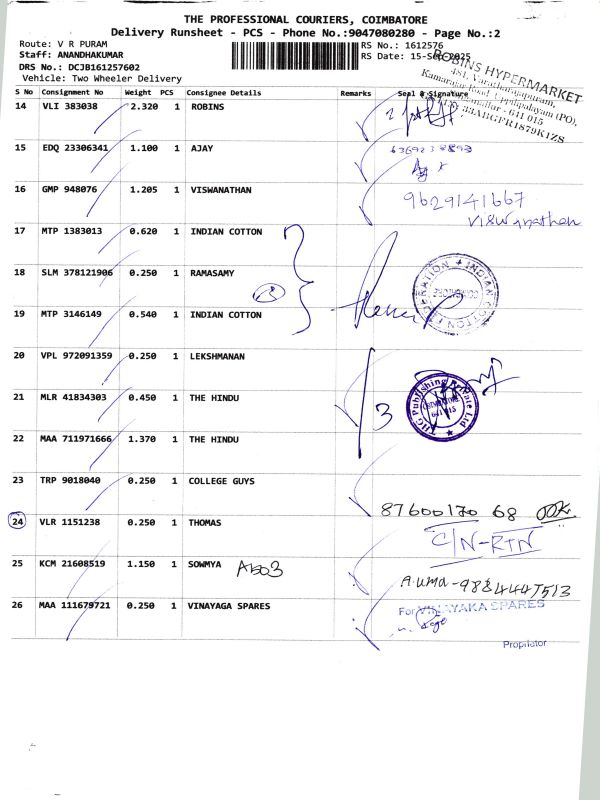 THE PROFESSIONAL COURIERS, COIMBATORE
Delivery Runsheet - PCS - Phone No.:9047080280 - Page No.:2
Route: V R PURAM
RS No.: 1612576
Staff: ANANDHAKUMAR
RS Date: 15-Sep-2025
DRS No.: DCJB161257602
Vehicle: Two Wheeler Delivery
ROBINS HYPERMARKET
611 015
33ABGFR1879K1ZS
S No Consignment No Weight PCS Consignee Details Remarks Seal & Signature
14 VLI 383038 2.320 1 ROBINS
15 EDQ 23306341 1.100 1 AJAY
16 GMP 948076 1.205 1 VISWANATHAN 9629141667
Viswanathan
17 MTP 1383013 0.620 1 INDIAN COTTON
18 SLM 378121906 0.250 1 RAMASAMY
INDIAN COTTON FEDERATION
COIMBATORE
19 MTP 3146149 0.540 1 INDIAN COTTON
20 VPL 972091359 0.250 1 LEKSHMANAN
21 MLR 41834303 0.450 1 THE HINDU 3
THG Publishing Private Ltd
COIMBATORE
641 015
22 MAA 711971666 1.370 1 THE HINDU
23 TRP 9018040 0.250 1 COLLEGE GUYS 87600170 68
24 VLR 1151238 0.250 1 THOMAS C/N-RTN
25 KCM 21608519 1.150 1 SOWMYA A503 A.uma-9884447513
26 MAA 111679721 0.250 1 VINAYAGA SPARES For VINAYAKA SPARES
Proprietor